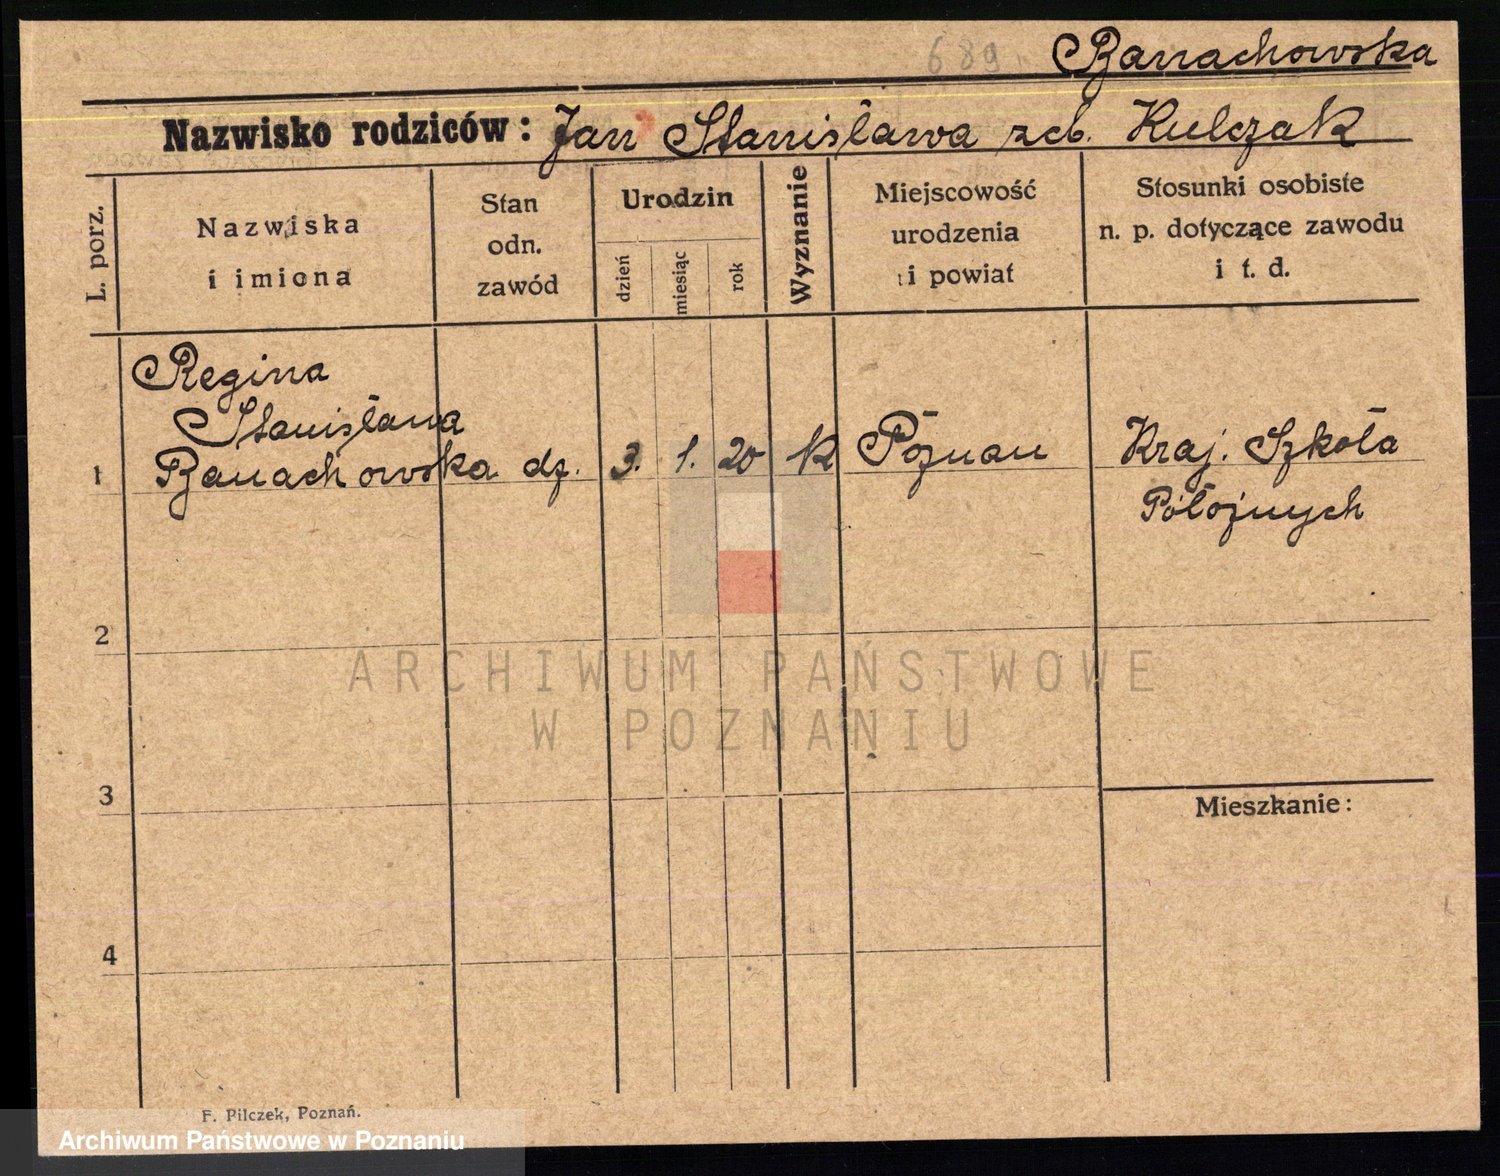 689.
Banachowska
Nazwisko rodziców: Jan Stanisława zd. Kulczak
L. porz.
Nazwiska
i imiona
Stan
odn.
zawód
Urodzin
dzień
miesiąc
rok
Wyznanie
Miejscowość
urodzenia
i powiat
Stosunki osobiste
n. p. dotyczące zawodu
i t. d.
Regina
Stanisława
1 Banachowska dz. 3. 1. 20 K Poznań Kraj. Szkoła
Położnych
2
ARCHIWUM PAŃSTWOWE
W POZNANIU
3
Mieszkanie:
4
F. Pilczek, Poznań.
Archiwum Państwowe w Poznaniu